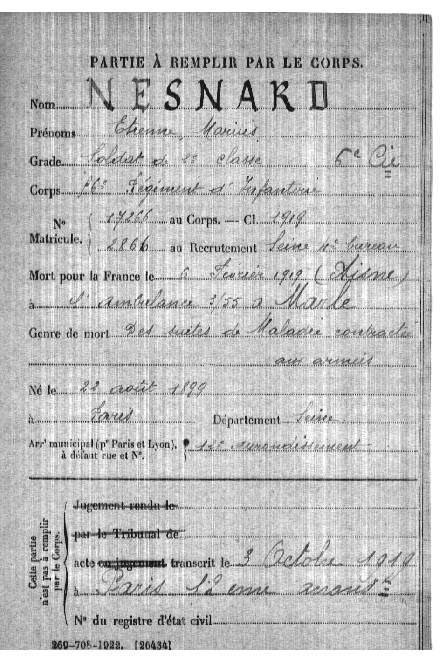 PARTIE À REMPLIR PAR LE CORPS.
Nom NESNARD
Prénoms Etienne, Marius
Grade Soldat de 2e classe 6e Cie
Corps 76e Régiment d'Infanterie
No Matricule. 17266 au Corps. — Cl. 1919
2866 au Recrutement Seine 4e bureau
Mort pour la France le 6 Fevrier 1919 (Aisne)
à l'ambulance 2/55 à Marle
Genre de mort Des suites de Maladie contractée
aux armées
Né le 22 août 1899
à Paris Département Seine
Arrt municipal (pr Paris et Lyon), 12e arrondissement
à défaut rue et No.
Cette partie n'est pas à remplir par le Corps.
Jugement rendu le
par le Tribunal de
acte ou jugement transcrit le 3 Octobre 1919
à Paris 12 eme arrondt
No du registre d'état civil
269-708-1922. [26434]